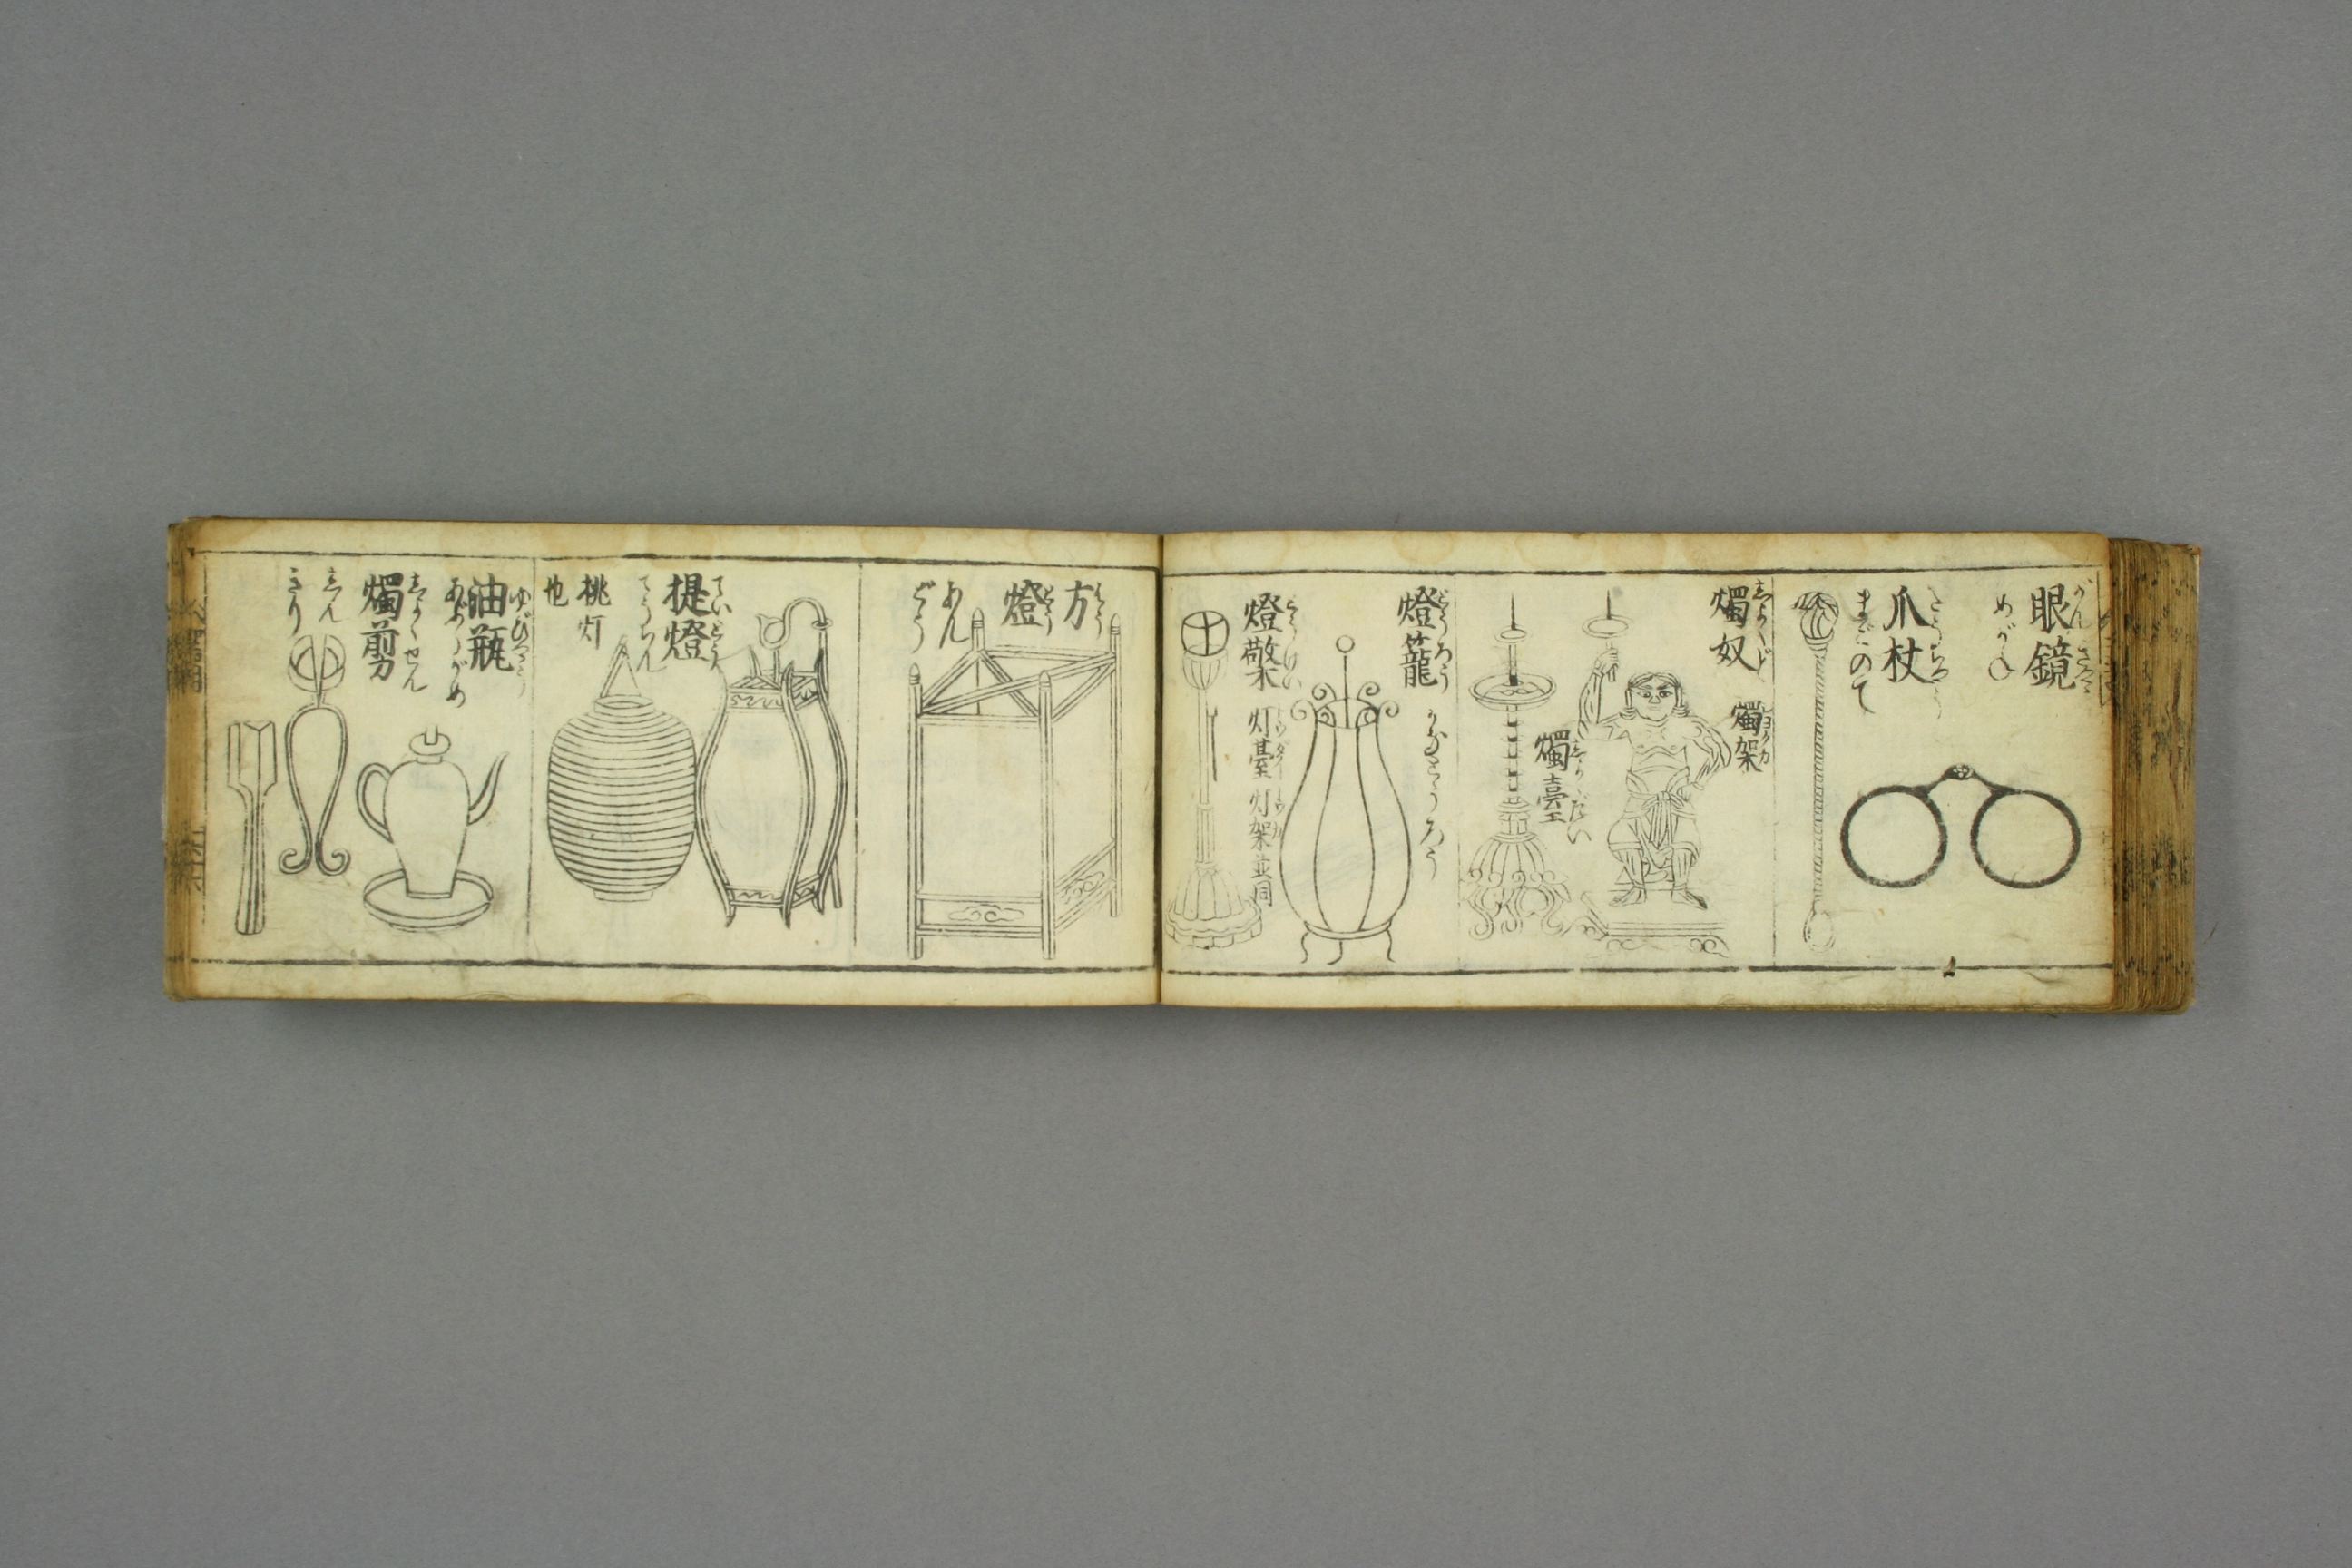 眼鏡
がんきやう
めがね
爪杖
さうぢやう
まごのて
燭奴
しよくど
燭架
ショクカ
燭臺
しよくだい
燈籠
とうろう
かなどうろう
燈檠
とうけい
灯臺 灯架並同
方燈
はうとう
あん
どう
提燈
ていとう
てうちん
桃灯
也
油瓶
ゆびやう
あぶらがめ
燭剪
しよくせん
しん
きり